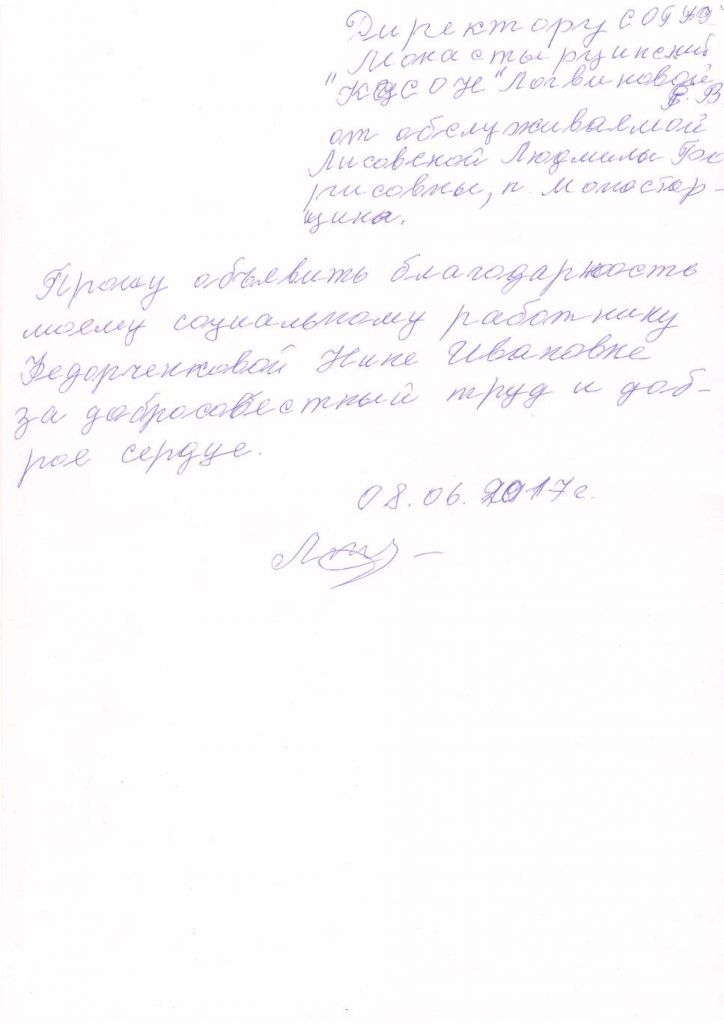 Директору СОГБУ
Монастырщинский
"КЦСОН" Логвиновой
С. В
от обслуживаемой
Лисовской Людмилы Бо
рисовны, п. Монастыр-
щина.
Прошу объявить благодарность
моему социальному работнику
Федорченковой Нине Ивановне
за добросовестный труд и доб-
рое сердце.
08.06.2017г.